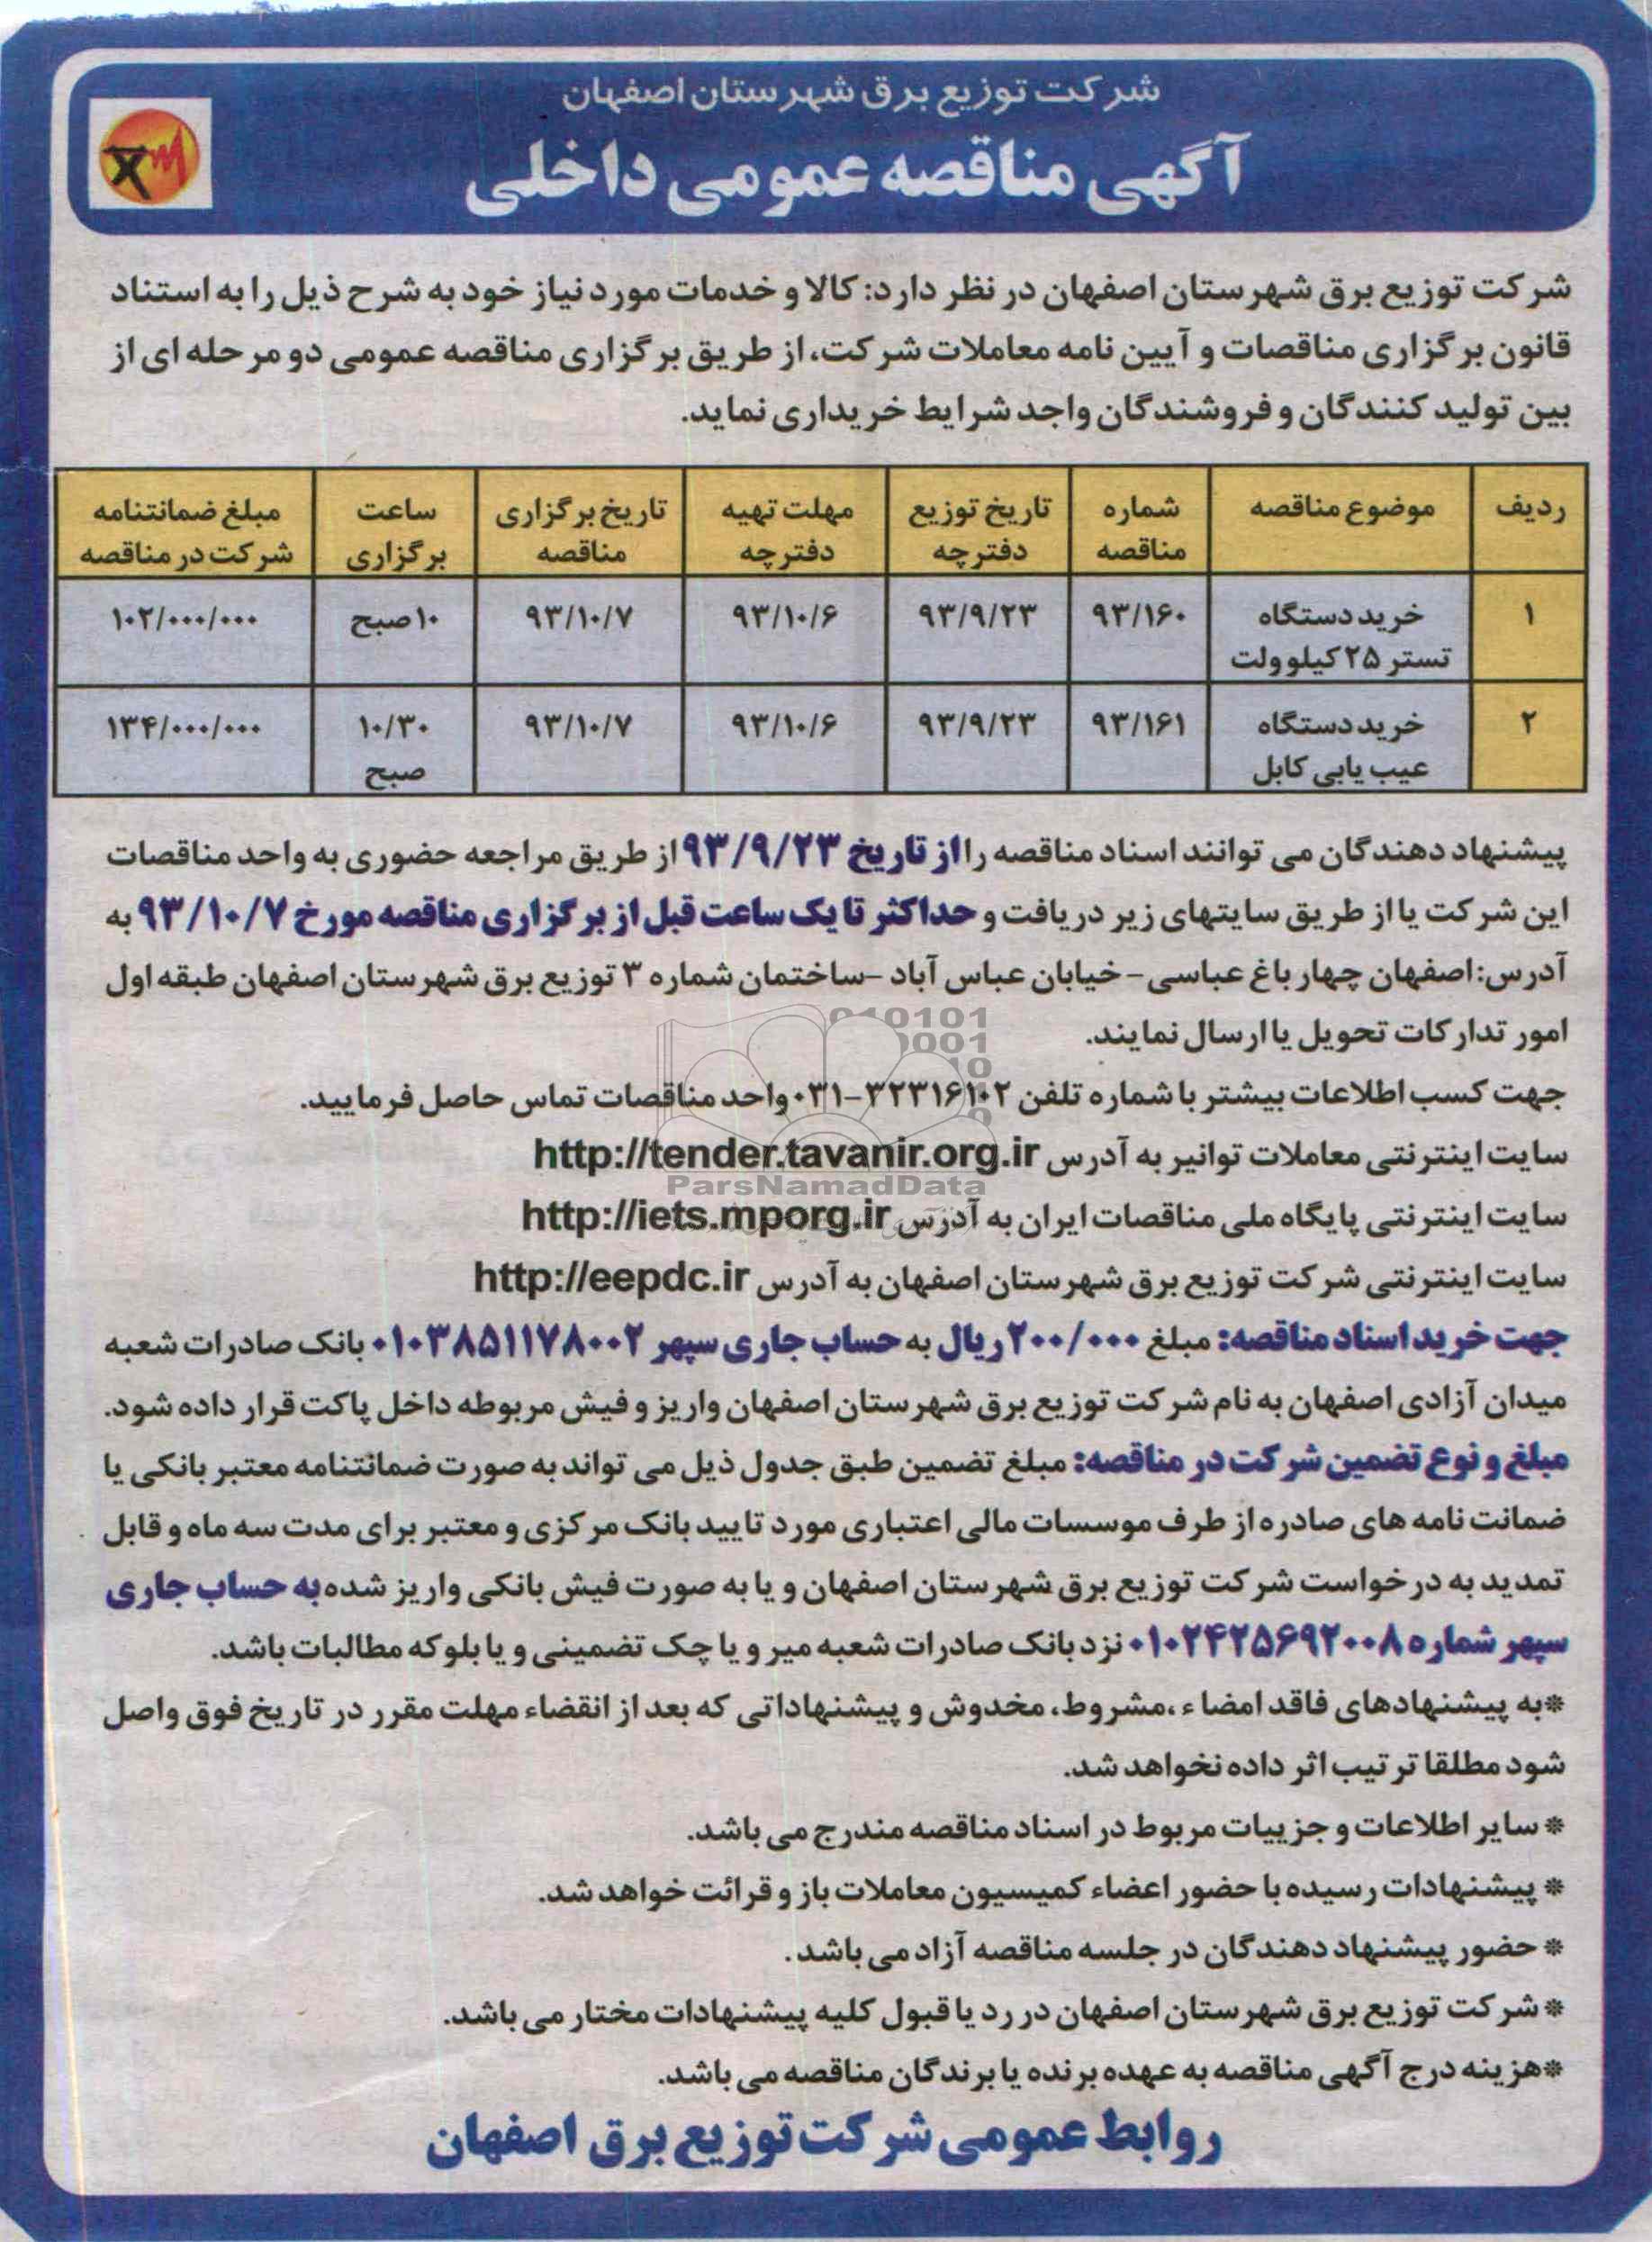 شرکت توزیع برق شهرستان اصفهان
آگهی مناقصه عمومی داخلی
شرکت توزیع برق شهرستان اصفهان در نظر دارد: کالا و خدمات مورد نیاز خود به شرح ذیل را به استناد
قانون برگزاری مناقصات و آیین نامه معاملات شرکت، از طریق برگزاری مناقصه عمومی دو مرحله ای از
بین تولید کنندگان و فروشندگان واجد شرایط خریداری نماید.
ردیف موضوع مناقصه شماره مناقصه تاریخ توزیع دفترچه مهلت تهیه دفترچه تاریخ برگزاری مناقصه ساعت برگزاری مبلغ ضمانتنامه شرکت در مناقصه
۱ خرید دستگاه تستر ۲۵ کیلو ولت ۹۳/۱۶۰ ۹۳/۹/۲۳ ۹۳/۱۰/۶ ۹۳/۱۰/۷ ۱۰ صبح ۱۰۲/۰۰۰/۰۰۰
۲ خرید دستگاه عیب یابی کابل ۹۳/۱۶۱ ۹۳/۹/۲۳ ۹۳/۱۰/۶ ۹۳/۱۰/۷ ۱۰/۳۰ صبح ۱۳۴/۰۰۰/۰۰۰
پیشنهاد دهندگان می توانند اسناد مناقصه را از تاریخ ۹۳/۹/۲۳ از طریق مراجعه حضوری به واحد مناقصات
این شرکت یا از طریق سایتهای زیر دریافت و حداکثر تا یک ساعت قبل از برگزاری مناقصه مورخ ۹۳/۱۰/۷ به
آدرس: اصفهان چهار باغ عباسی – خیابان عباس آباد –ساختمان شماره ۳ توزیع برق شهرستان اصفهان طبقه اول
امور تدارکات تحویل یا ارسال نمایند.
جهت کسب اطلاعات بیشتر با شماره تلفن ۳۲۳۱۶۱۰۲–۰۳۱ واحد مناقصات تماس حاصل فرمایید.
سایت اینترنتی معاملات توانیر به آدرس http://tender.tavanir.org.ir
ParsNamadData
سایت اینترنتی پایگاه ملی مناقصات ایران به آدرس http://iets.mporg.ir
سایت اینترنتی شرکت توزیع برق شهرستان اصفهان به آدرس http://eepdc.ir
جهت خرید اسناد مناقصه: مبلغ ۲۰۰/۰۰۰ ریال به حساب جاری سپهر ۰۱۰۳۸۵۱۱۷۸۰۰۲ بانک صادرات شعبه
میدان آزادی اصفهان به نام شرکت توزیع برق شهرستان اصفهان واریز و فیش مربوطه داخل پاکت قرار داده شود.
مبلغ و نوع تضمین شرکت در مناقصه: مبلغ تضمین طبق جدول ذیل می تواند به صورت ضمانتنامه معتبر بانکی یا
ضمانت نامه های صادره از طرف موسسات مالی اعتباری مورد تایید بانک مرکزی و معتبر برای مدت سه ماه و قابل
تمدید به درخواست شرکت توزیع برق شهرستان اصفهان و یا به صورت فیش بانکی واریز شده به حساب جاری
سپهر شماره ۰۱۰۲۴۲۵۶۹۲۰۰۸ نزد بانک صادرات شعبه میر و یا چک تضمینی و یا بلوکه مطالبات باشد.
*به پیشنهادهای فاقد امضاء ،مشروط، مخدوش و پیشنهاداتی که بعد از انقضاء مهلت مقرر در تاریخ فوق واصل
شود مطلقا ترتیب اثر داده نخواهد شد.
* سایر اطلاعات و جزییات مربوط در اسناد مناقصه مندرج می باشد.
* پیشنهادات رسیده با حضور اعضاء کمیسیون معاملات باز و قرائت خواهد شد.
* حضور پیشنهاد دهندگان در جلسه مناقصه آزاد می باشد.
* شرکت توزیع برق شهرستان اصفهان در رد یا قبول کلیه پیشنهادات مختار می باشد.
*هزینه درج آگهی مناقصه به عهده برنده یا برندگان مناقصه می باشد.
روابط عمومی شرکت توزیع برق اصفهان